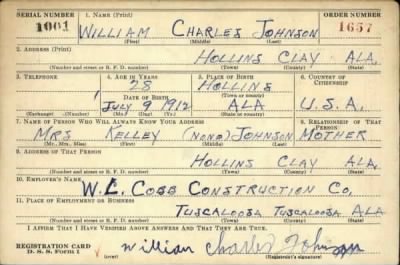 SERIAL NUMBER 1. NAME (Print) ORDER NUMBER
1001 WILLIAM CHARLES JOHNSON 1657
(First) (Middle) (Last)
2. ADDRESS (Print)
HOLLINS CLAY ALA.
(Number and street or R. F. D. number) (Town) (County) (State)
3. TELEPHONE 4. AGE IN YEARS 5. PLACE OF BIRTH 6. COUNTRY OF CITIZENSHIP
28 HOLLINS
DATE OF BIRTH (Town or county)
JULY 9 1912 ALA U.S.A.
(Exchange) (Number) (Mo.) (Day) (Yr.) (State or country)
7. NAME OF PERSON WHO WILL ALWAYS KNOW YOUR ADDRESS 8. RELATIONSHIP OF THAT PERSON
MRS KELLEY (NONE) JOHNSON MOTHER
(Mr., Mrs., Miss) (First) (Middle) (Last)
9. ADDRESS OF THAT PERSON
HOLLINS CLAY ALA.
(Number and street or R. F. D. number) (Town) (County) (State)
10. EMPLOYER'S NAME
W. L. COBB CONSTRUCTION CO.
11. PLACE OF EMPLOYMENT OR BUSINESS
TUSCALOOSA TUSCALOOSA ALA
(Number and street or R. F. D. number) (Town) (County) (State)
I AFFIRM THAT I HAVE VERIFIED ABOVE ANSWERS AND THAT THEY ARE TRUE.
REGISTRATION CARD
D. S. S. Form 1 William Charles Johnson
(Registrant's signature)